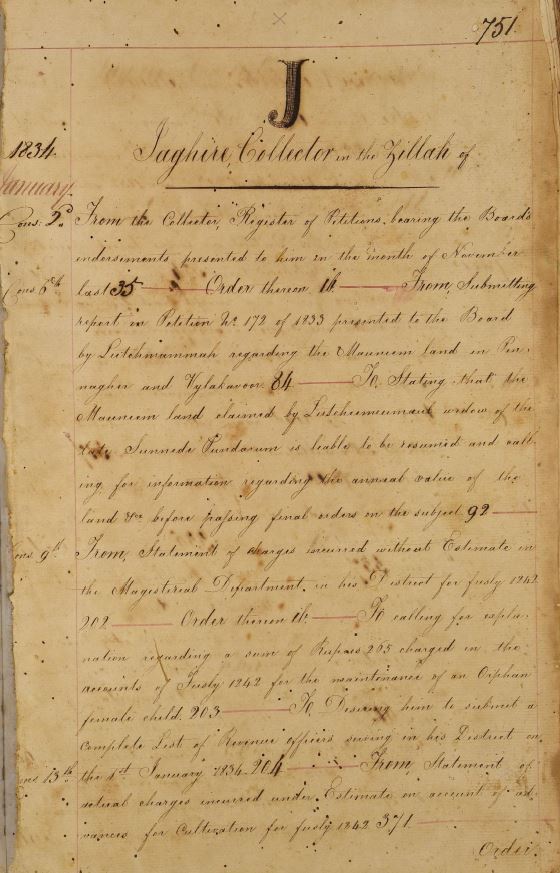 751
J
1834
Jaghire, Collector in the Zillah of
January
Cons. 2d From the Collector, Register of Petitions bearing the Board's
indorsements presented to him in the month of November
Cons. 6th last 35 — Order thereon ib — From, Submitting
report in Petition No. 172 of 1833 presented to the Board
by Lutchmammah regarding the Mauneem land in Pen
nagher and Vylakavoor 84 — To Stating that the
Mauneem land claimed by Lutcheemeumah widow of the
late Sunnede Pundarum is leable to be resumed and call-
ing for information regarding the annual value of the
land &ca before passing final orders on the subject 92 —
Cons. 9th From, Statement of charges incurred without Estimate in
the Magisterial Department in his District for fusly 1242
202 — Order thereon ib — To calling for expla-
nation regarding a sum of Rupees 205 charged in the
accounts of Fusly 1242 for the maintenance of an Orphan
female child. 203 — To Desiring him to submit a
Complete List of Revenue officers serving in his District on
Cons 13th the 1st January 1834. 204 — From Statement of
actual charges incurred under Estimate on account of ad-
vances for Cultivation for fusly 1242 371 —
Order